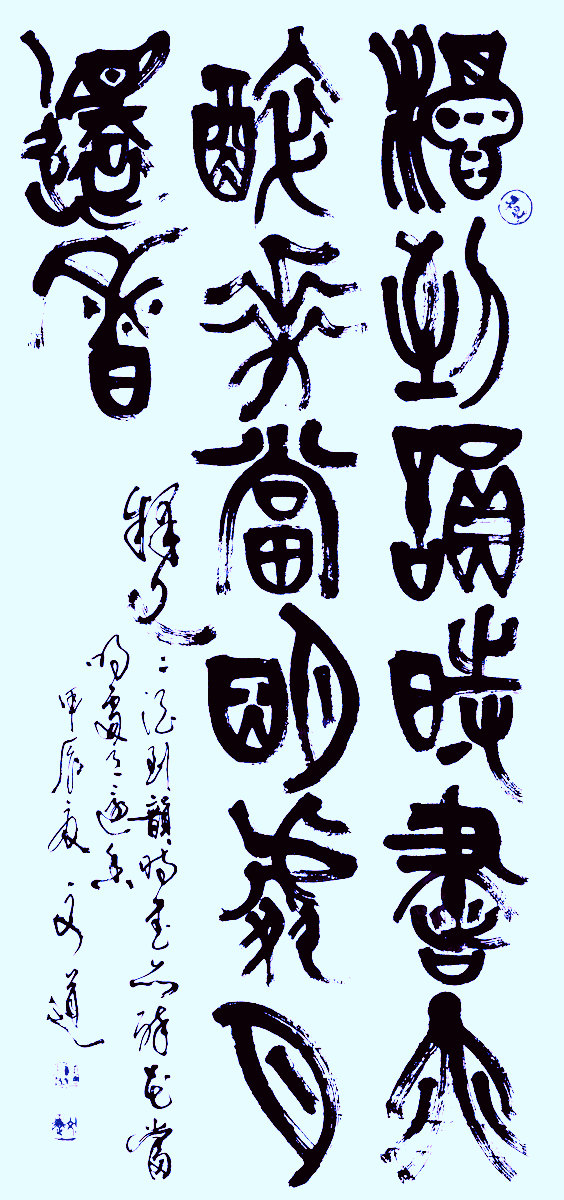 酒到韻時書亦
醉花當明處月
還香
釋文
酒到韻時書亦醉花當
明處月還香
甲辰夏 文道